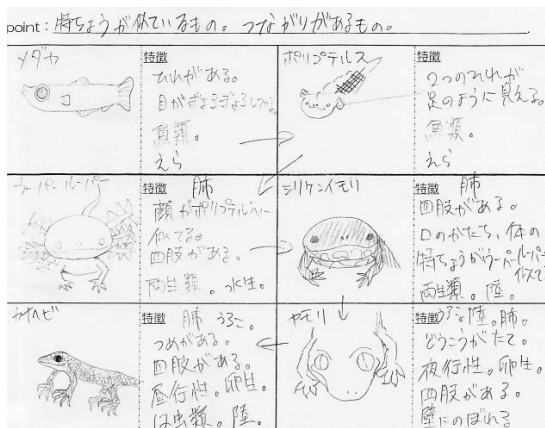 point : 特ちょうが似ているもの。つながりがあるもの。
メダカ
特徴
ひれがある。
目がぎょろぎょろしてる。
魚類。
えら
ポリプテルス
特徴
2つのひれが
足のように見える。
魚類。
えら
ウーパールーパー
特徴 肺
顔がポリプテルスに
似てる。
四肢がある。
両生類。水生。
シリケンイモリ
特徴 肺
四肢がある。
口のかたち、体の
特ちょうがウーパールーパー
似てる
両生類。陸。
カナヘビ
特徴 肺 うろこ。
つめがある。
四肢がある。
昼行性。卵生。
は虫類。陸。
ヤモリ
特徴 うろこ。陸。肺。
どうこうがたて。
夜行性。卵生。
四肢がある。
壁にのぼれる